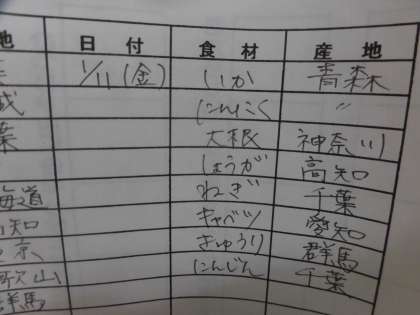 地 日付 食材 産地
1/11(金) いか 青森
成 にんにく 〃
葉 大根 神奈川
しょうが 高知
海道 ねぎ 千葉
知 キャベツ 愛知
京 きゅうり 群馬
歌山 にんじん 千葉
群馬